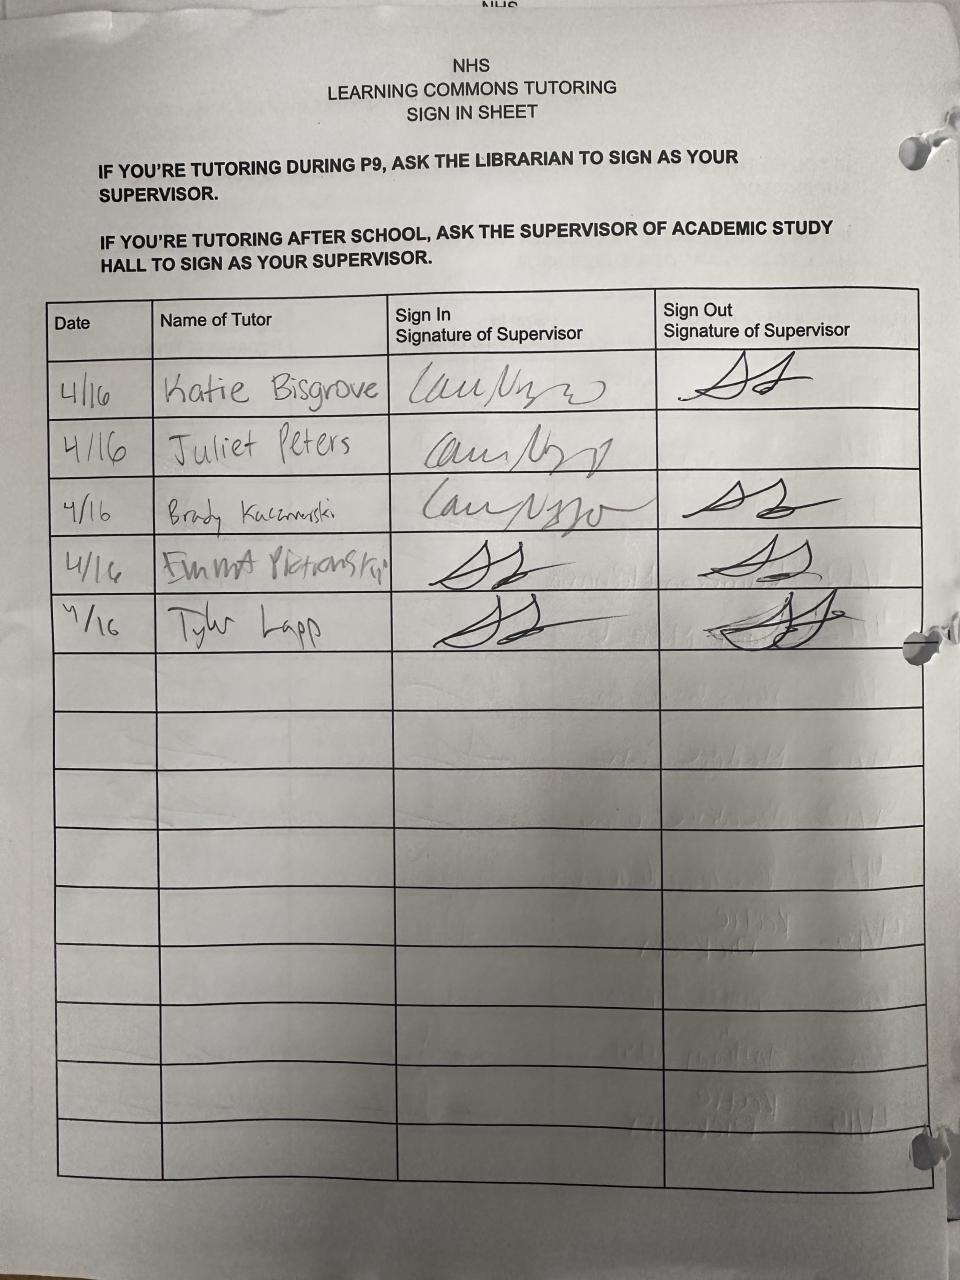 NHS
LEARNING COMMONS TUTORING
SIGN IN SHEET
IF YOU'RE TUTORING DURING P9, ASK THE LIBRARIAN TO SIGN AS YOUR
SUPERVISOR.
IF YOU'RE TUTORING AFTER SCHOOL, ASK THE SUPERVISOR OF ACADEMIC STUDY
HALL TO SIGN AS YOUR SUPERVISOR.
Date Name of Tutor Sign In Signature of Supervisor Sign Out Signature of Supervisor
4/16 Katie Bisgrove
4/16 Juliet Peters
4/16 Brady
4/16
4/16 Tyler Lapp